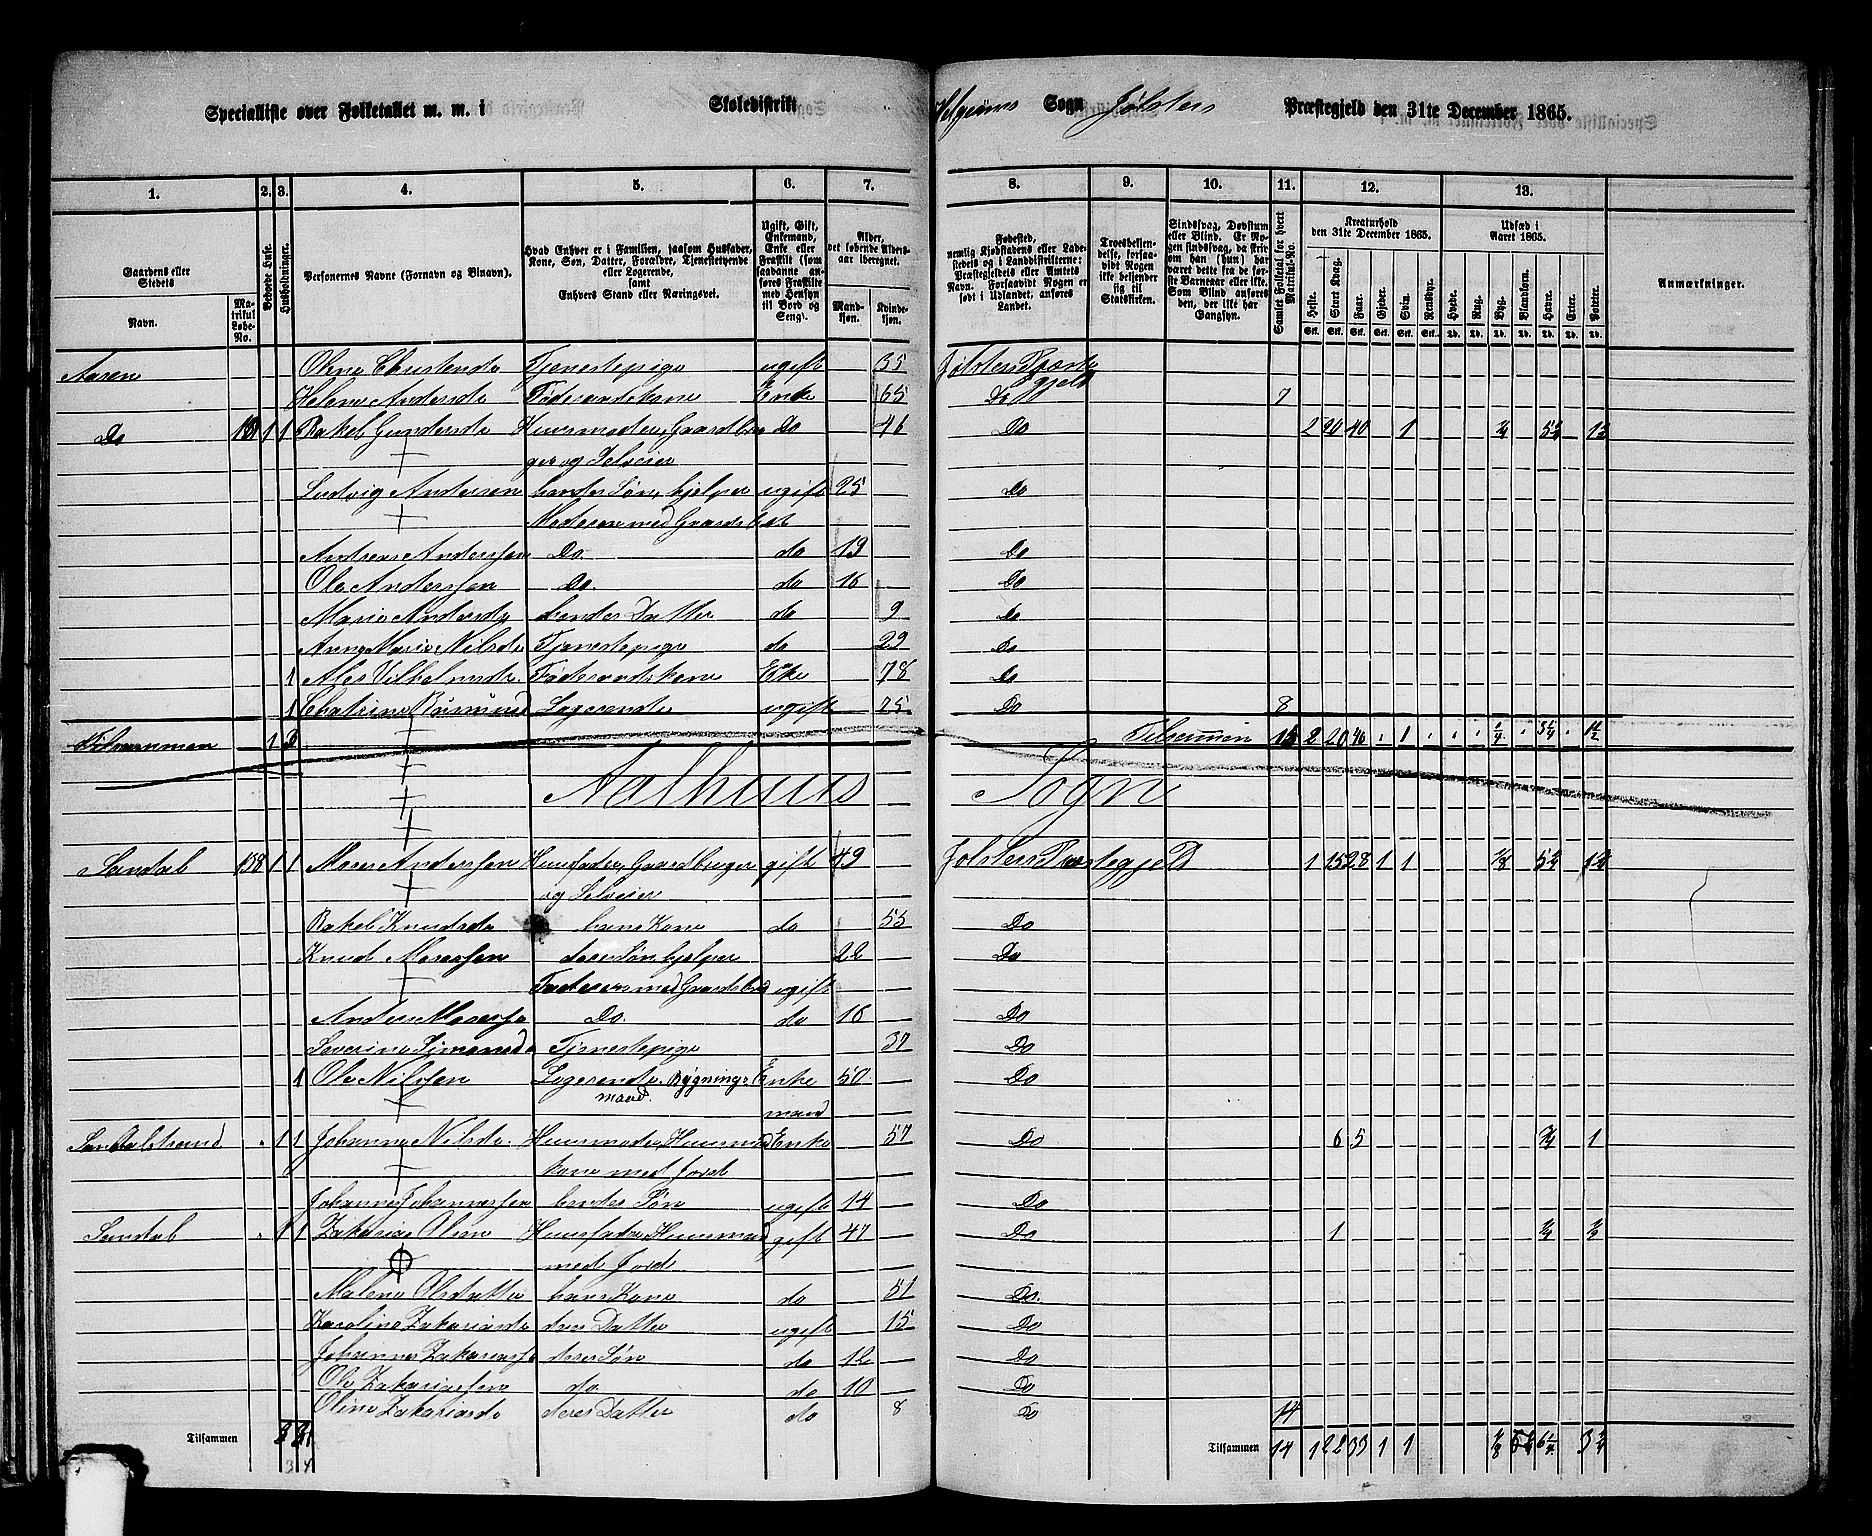 Specialliste over Folketallet m. m. i Skoledistrikt Helgeims Sogn Jølsters Præstegjeld den 31te December 1865.
1. 2. 3. 4. 5. 6. 7. 8. 9. 10. 11. 12. 13.
Gaardens eller Stedets Navn. Matrikul Løbe-No. Bebodde Huse. Husholdninger. Personernes Navne (Fornavn og Binavn). Hvad Enhver er i Familien, saasom Husfader, Kone, Søn, Datter, Forældre, Tjenestetyende eller Logerende, samt Enhvers Stand eller Næringsvei. Ugift, Gift, Enkemand, Enke eller Fraskilt (som saadanne anføres Fraskilte med Hensyn til Bord og Seng). Alder, det løbende Aldersaar iberegnet. Mandkjøn. Kvindekjøn.
Fødested, nemlig Kjøbstadens eller Ladestedets eller i Landdistrikterne: Præstegjeldets eller Amtets Navn. Forsaavidt Nogen er født i Udlandet, anføres Landet. Troesbekjendelse, forsaavidt Nogen ikke bekjender sig til Statskirken. Sindssvag, Døvstum eller Blind. Er Nogen sindssvag, da skrives om han (hun) har været dette fra de første Barneaar eller ikke. Som Blind anføres den, der ikke har Gangsyn. Samlet Folketal for hvert Matrikul-No. Kreaturhold den 31te December 1865. Heste. Stort Kvæg. Faar. Gjeder. Svin. Rensdyr. Udsæd i Aaret 1865. Hvede. Rug. Byg. Blandkorn. Havre. Erter. Poteter. Anmærkninger.
Aasen Oline Christensda Tjenestepige ugift 35 Jølsters Præstegjeld
Helene Andersda Føderaadskone Enke 65 Do 7
Do 1 1 Rakel Gundersda Huusmoder, Gaardbru Do 46 Do 2 20 40 1 1/4 5 3/4 1 1/2
ger og Selveier
Ludvig Andersen hendes Søn, hjelper ugift 25 Do
Moderen med Gaardsbrt
Andreas Anderssen Do do 19 Do
Ole Anderssen Do. do 16 Do
Marie Andersda hendes Datter do 9 Do
Anne Marie Nilsda Tjenestepige do 29 Do
1 Ales Vilhelmsda Føderaadskone Eke 78 Do
1 Chatrine Logerende ugift 25 Do 8
Tilsammen 1 3 Tilsammen 15 2 20 40 . 1 . . 1/4 . 5 3/4 . 1 1/2
Aalhuus Sogn
Sandal 158 1 1 Mons Anderssen Huusfader, Gaardbruger gift 49 Jølsters Præstegjeld 1 15 28 1 1 1/8 5 3/4 1 3/4
og Selveier
Rakel Knudsda hans Kone do 55 Do
Knud Monssen deres Søn hjelper 22 Do
Faderen med Gaardsbrd ugift
Anders Monsse Do. do 16 Do
Severine Simonsda Tjenestepige 37 Do
1 Ole Nilssen Logerende, Bygnings Enke 50 Do
mand. mand
Sandalstrand . 1 1 Johanne Nilsda. Huusmoder, Huusmand Enke 57 Do 6 5 3/4 1
kone med Jord
Johannes Johannessen hendes Søn ugift 14 Do
Sandal . 1 1 Zakarias Olsen Huusfader, Huusmand gift 47 Do 1 3/4 3/4
med Jord
Malene Olsdatte hans Kone do 51 Do.
Karoline Zakariasda deres Datter ugift 15 Do
Johannes Zakariasse deres Søn do 12 Do
Ole Zakariassen do do 10 Do
Oline Zakariasda deres Datter do 8 Do 14
Tilsammen 3 4 Tilsammen 14 1 22 33 1 1 1/8 3 3/4